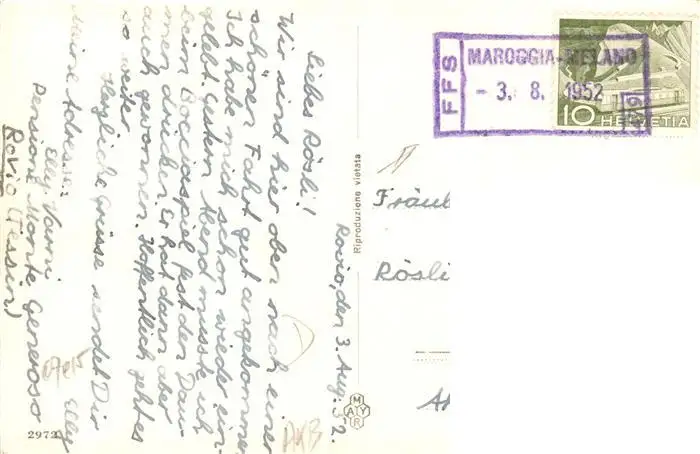 Rovio, den 3. Aug. 52.
Liebes Rösli!
Wir sind hier oben nach einer
schönen Fahrt gut angekommen.
Ich habe mich schon wieder ein-
gelebt. Gestern Abend musste ich
beim Bocciaspiel fest den Dau-
men drücken. Er hat dann aber
auch gewonnen. Hoffentlich gehts
so weiter.
Herzliche Grüsse sendet Dir
Elly
Meine Adresse:
Elly
Pensione Monte Generoso
Rovio (Tessin)
2972
Riproduzione vietata
MAYR
FFS
MAROGGIA-MELANO
- 3. 8. 1952
10 HELVETIA
Fräul
Rösli